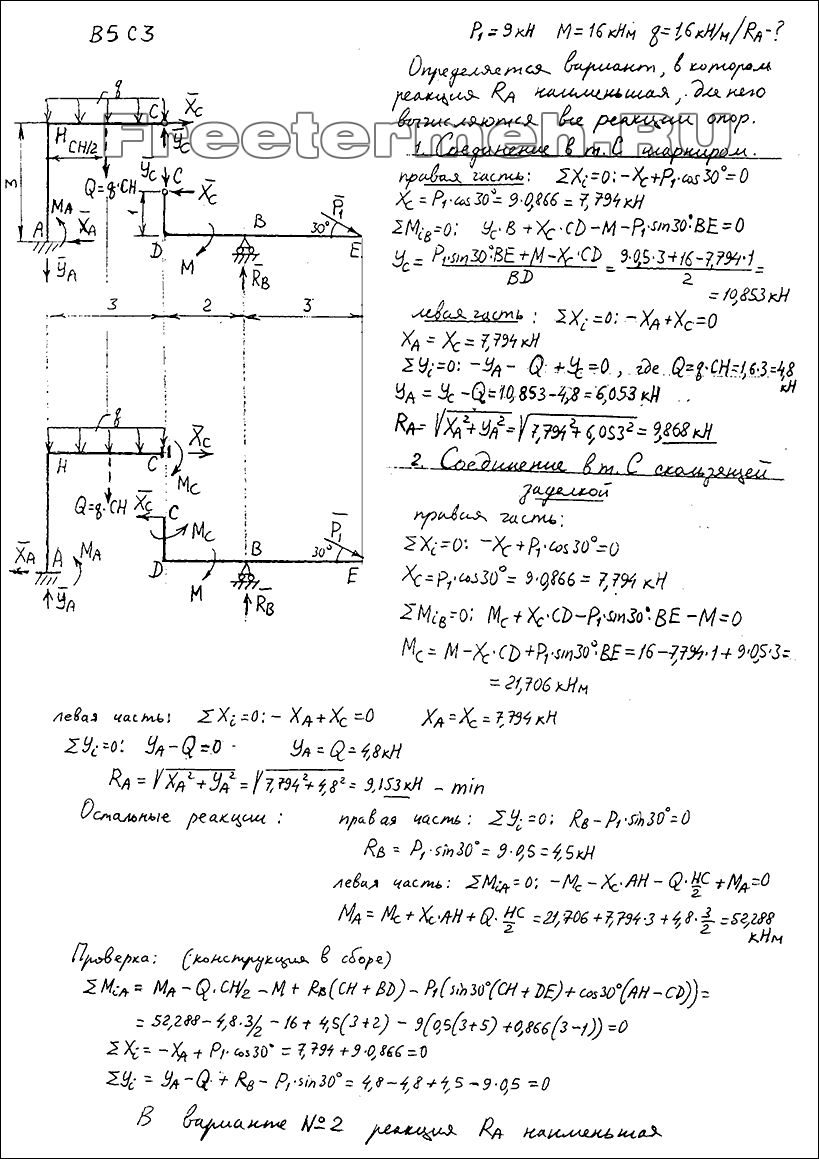 B5 C3
P₁=9кН M=16кНм q=1,6кН/м/R_A-?
Определяется вариант, в котором
реакция R_A наименьшая, для него
вычисляются все реакции опор.
Freetermeh.RU
1. Соединение в т. C шарниром.
правая часть: ΣXᵢ=0: -X_C+P₁·cos30°=0
X_C=P₁·cos30°=9·0,866=7,794кН
ΣM_iB=0: Y_C·B+X_C·CD-M-P₁·sin30°·BE=0
Y_C=(P₁·sin30°·BE+M-X_C·CD)/BD=(9·0,5·3+16-7,794·1)/2=
=10,853кН
левая часть: ΣXᵢ=0: -X_A+X_C=0
X_A=X_C=7,794кН
ΣYᵢ=0: -Y_A-Q+Y_C=0, где Q=q·CH=1,6·3=4,8
кН
Y_A=Y_C-Q=10,853-4,8=6,053кН
R_A=√(X_A²+Y_A²)=√(7,794²+6,053²)=9,868кН
2. Соединение в т. C скользящей
заделкой
правая часть:
ΣXᵢ=0: -X_C+P₁·cos30°=0
X_C=P₁·cos30°=9·0,866=7,794кН
ΣM_iB=0: M_C+X_C·CD-P₁·sin30°·BE-M=0
M_C=M-X_C·CD+P₁·sin30°·BE=16-7,794·1+9·0,5·3=
=21,706кНм
q
H C X_C
Y_C
CH/2
3
Q=q·CH
Y_C C X_C
1
M_A
A X_A
Y_A
D M B
R_B
30° P₁
E
3 2 3
q
H C X_C
M_C
Q=q·CH X_C C
M_C
X_A A M_A
Y_A
D M B
R_B
30° P₁
E
левая часть: ΣXᵢ=0: -X_A+X_C=0 X_A=X_C=7,794кН
ΣYᵢ=0: Y_A-Q=0 Y_A=Q=4,8кН
R_A=√(X_A²+Y_A²)=√(7,794²+4,8²)=9,153кН - min
Остальные реакции: правая часть: ΣYᵢ=0: R_B-P₁·sin30°=0
R_B=P₁·sin30°=9·0,5=4,5кН
левая часть: ΣM_iA=0: -M_C-X_C·AH-Q·HC/2+M_A=0
M_A=M_C+X_C·AH+Q·HC/2=21,706+7,794·3+4,8·3/2=52,288
кНм
Проверка: (конструкция в сборе)
ΣM_iA=M_A-Q·CH/2-M+R_B(CH+BD)-P₁(sin30°(CH+DE)+cos30°(AH-CD))=
=52,288-4,8·3/2-16+4,5(3+2)-9(0,5(3+5)+0,866(3-1))=0
ΣXᵢ=-X_A+P₁·cos30°=7,794+9·0,866=0
ΣYᵢ=Y_A-Q+R_B-P₁·sin30°=4,8-4,8+4,5-9·0,5=0
В варианте №2 реакция R_A наименьшая